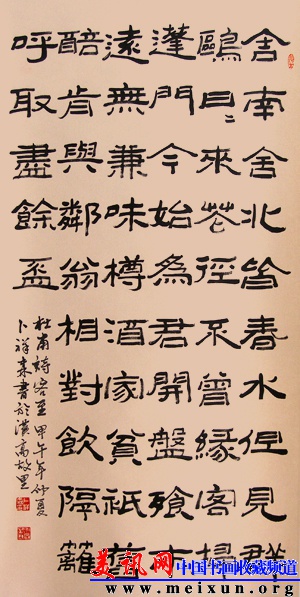 舍南舍北皆春水但見群
鷗日〻來花徑不曾緣客掃
蓬門今始為君開盤飧市
遠無兼味樽酒家貧祇舊
醅肯與鄰翁相對飲隔籬
呼取盡餘盃
杜甫詩客至 甲午年仲夏
卜祥來書於漢高故里
美讯网 中国书画收藏频道
www.meixun.org